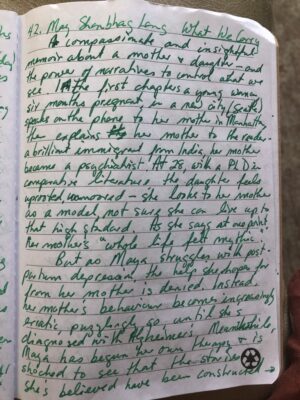 42. Maya Shanbhag Lang What We Carry
A compassionate and insightful
memoir about a mother & daughter – and
the power of narratives to control what we
see. In the first chapters a young woman
six months pregnant in a new city (Seattle)
speaks on the phone to her mother in Manhattan
then explains her mother to the reader –
a brilliant immigrant from India, her mother
became a psychiatrist. At 28, with a PhD in
comparative literature, the daughter feels
uprooted, unmoored – she looks to her mother
as a model, not sure she can live up to
that high standard. As she says at one point
her mother's "whole life felt mythic."
But as Maya struggles with post
partum depression the help she hoped for
from her mother is denied. Instead
her mother's behaviour becomes increasingly
erratic, puzzlingly so, until she's
diagnosed with Alzheimer's. Meanwhile,
Maya has begun her own therapy & is
shocked to see that the stories
she's believed have been constructed →